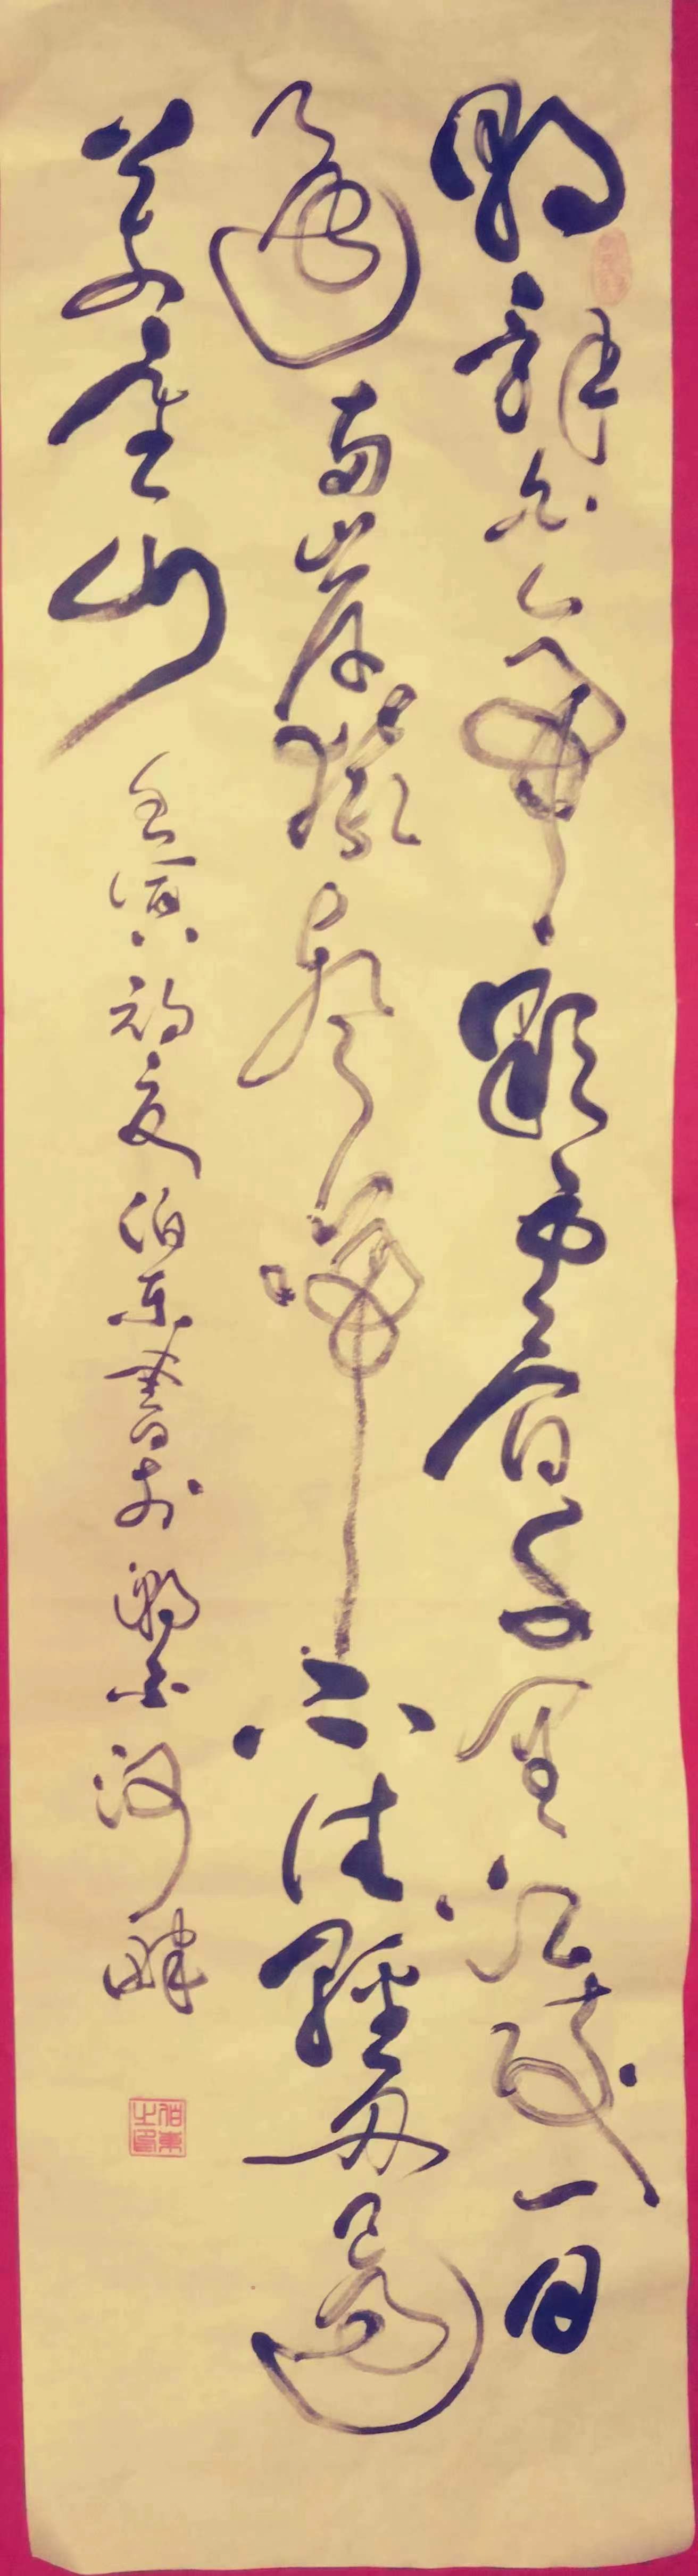 朝辭白帝彩雲間千里江陵一日
還兩岸猿聲啼不住輕舟已過
萬重山
壬寅初夏伯東書於潮白河畔
伯東之印